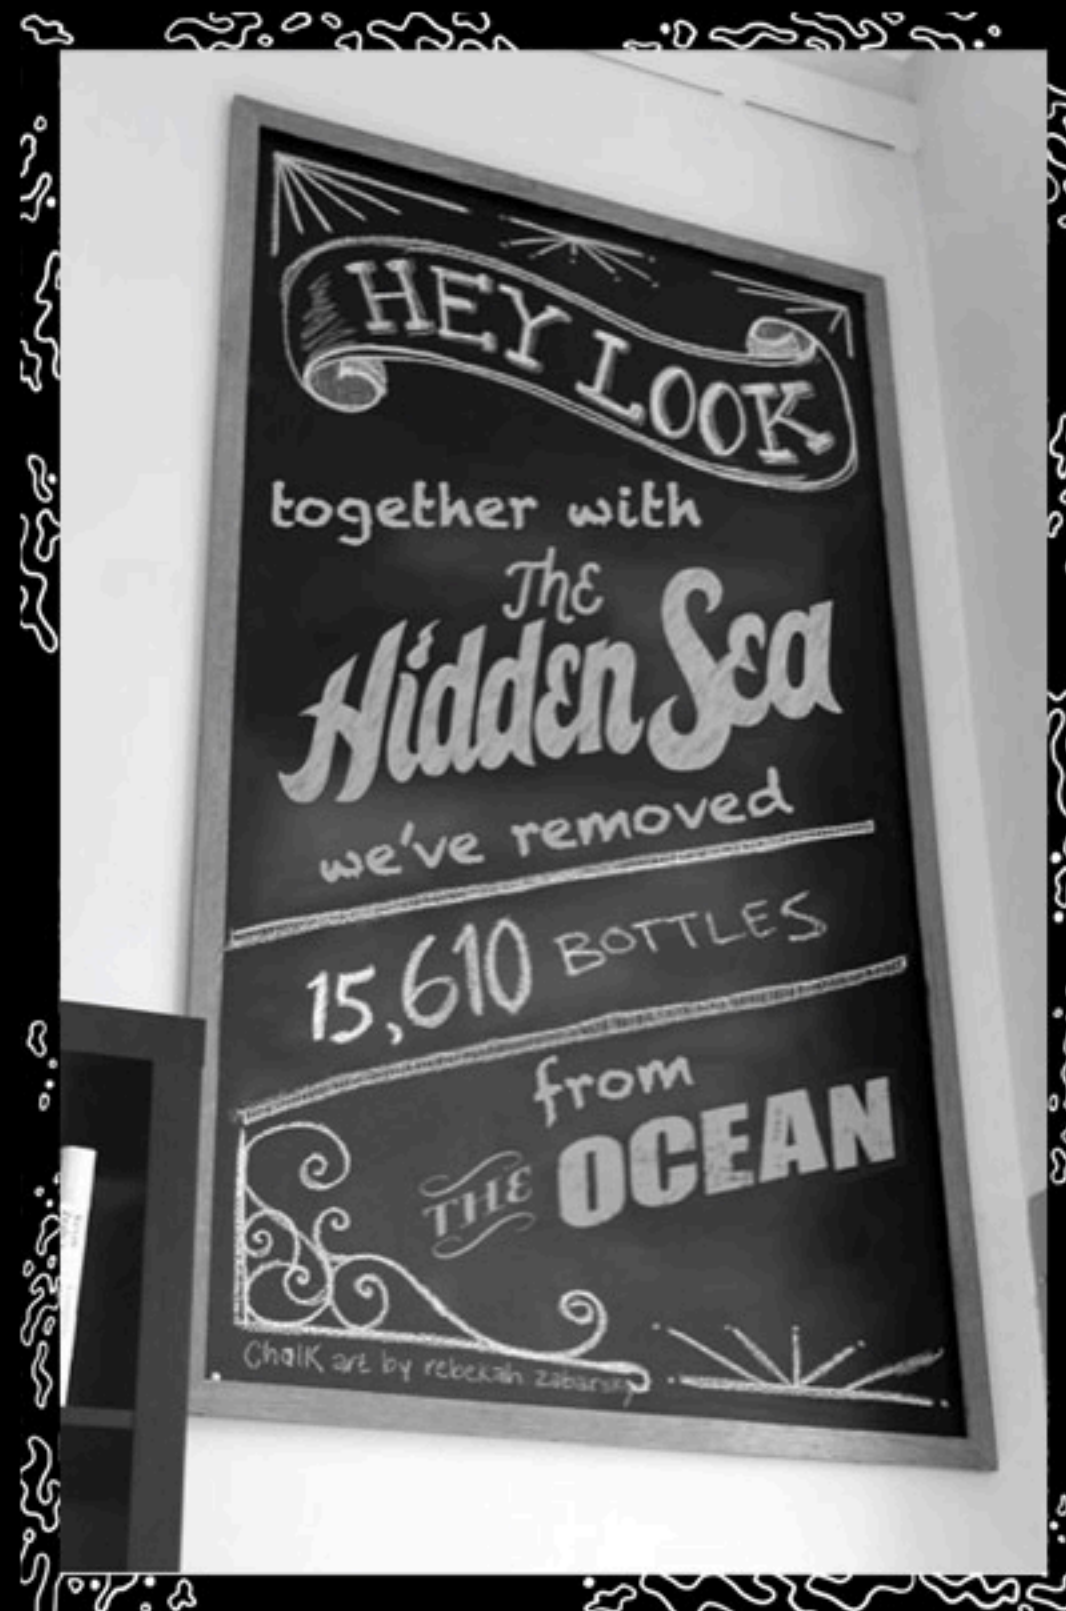 HEY LOOK
together with
The
Hidden Sea
we've removed
15,610 BOTTLES
from
THE OCEAN
Chalk art by rebekah zabarsky